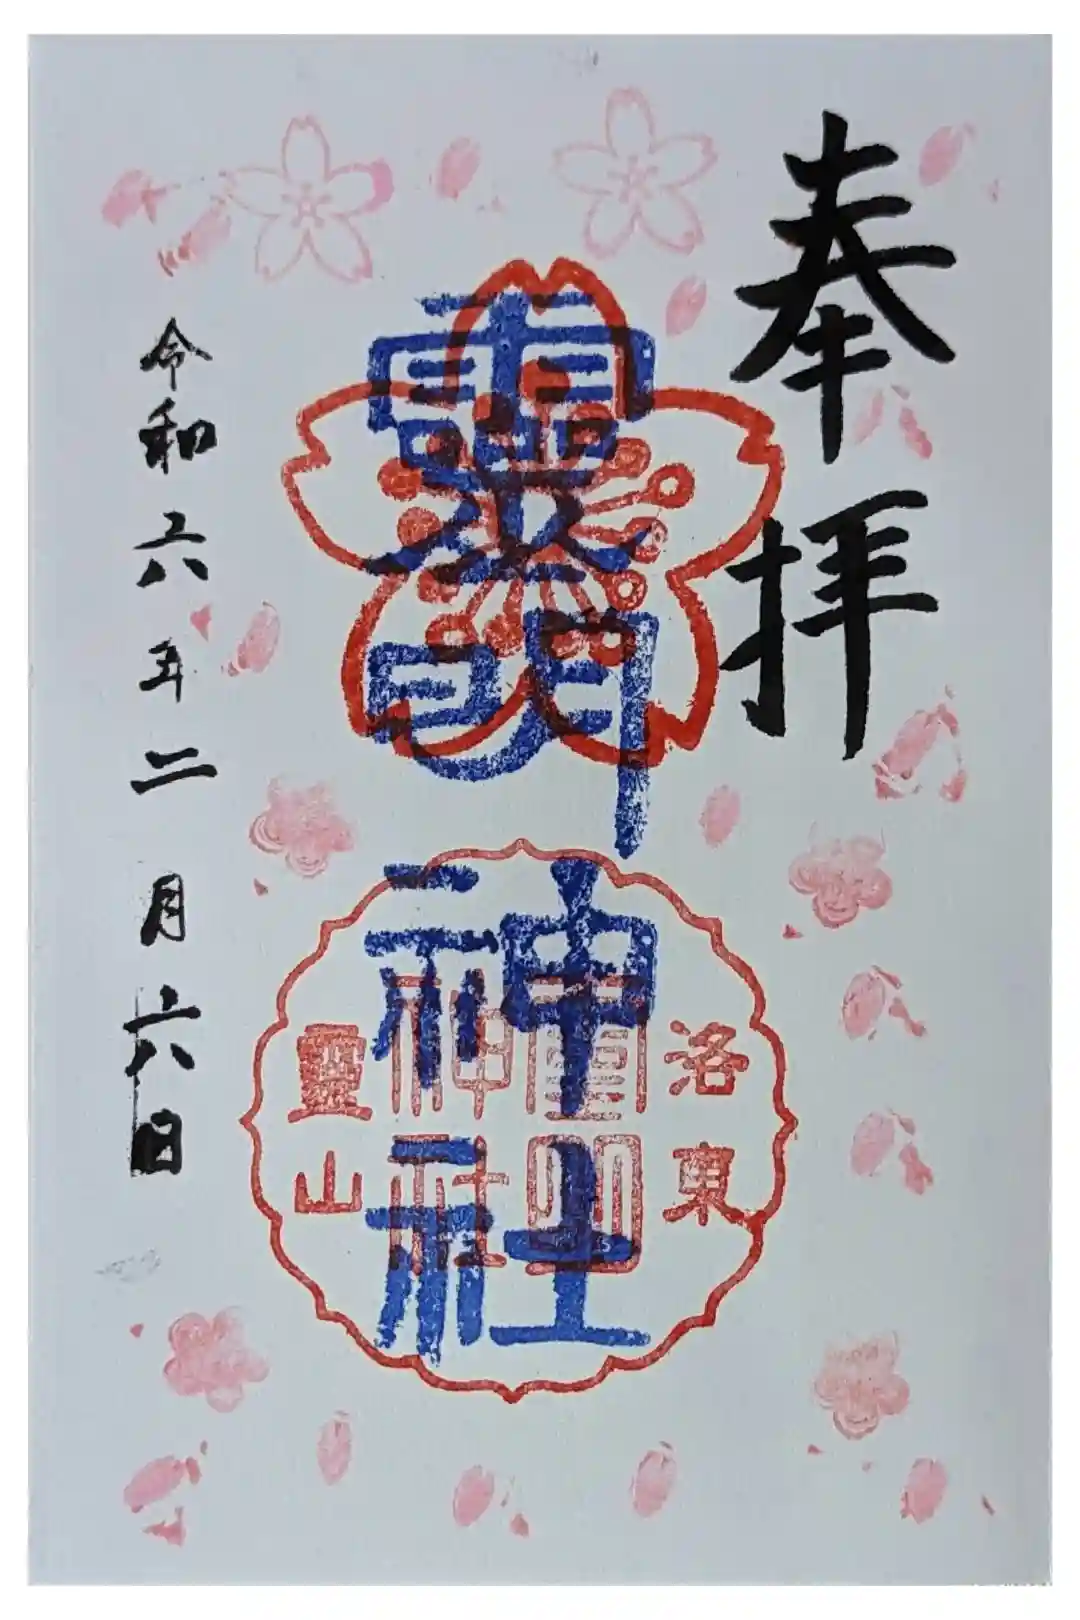 奉拝
靈明神社
洛東
靈明
神社
靈山
令和六年二月六日